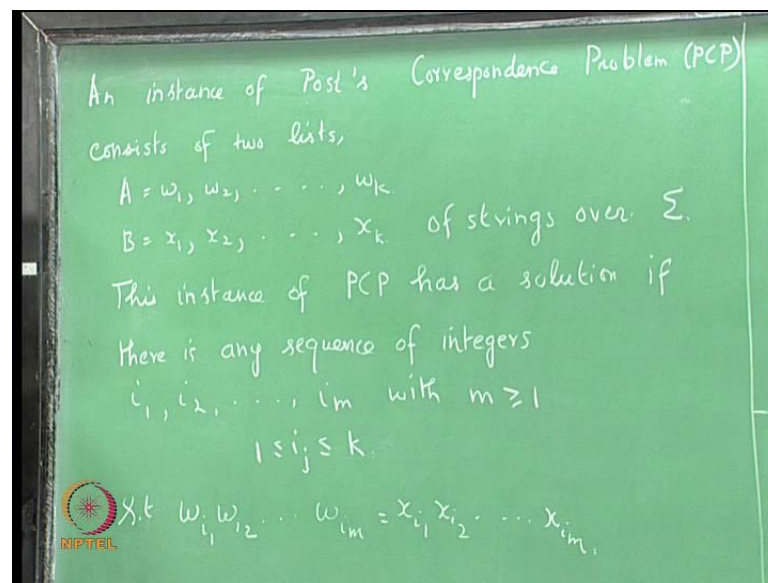 An instance of Post's Correspondence Problem (PCP)
consists of two lists,
A = w₁, w₂, . . . . ., wₖ
B = x₁, x₂, . . . ., xₖ of strings over Σ.
This instance of PCP has a solution if
there is any sequence of integers
i₁, i₂, . . . ., im with m ≥ 1
1 ≤ ij ≤ k.
S.t wi₁ wi₂ . . . wim = xi₁ xi₂ . . . . xim.
NPTEL